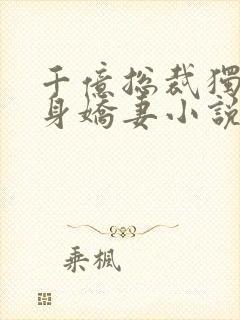 千億總裁獨
身嬌妻小說
乘楓